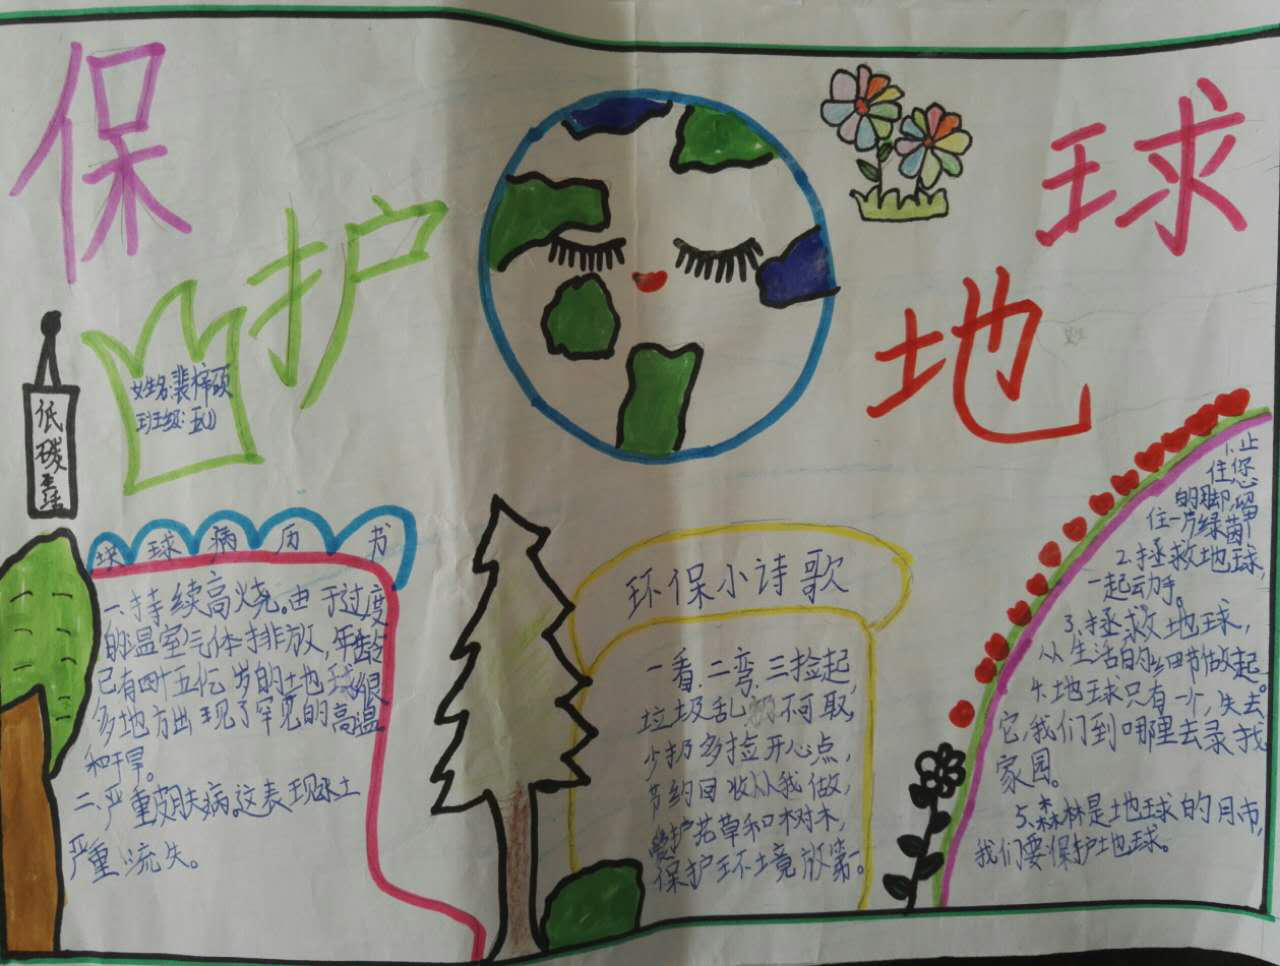 保护地球
姓名:裴梓硕
班级:五(1)
低碳生活
地球病历书
一、持续高烧。由于过度
的温室气体排放,年龄
已有四十五亿岁的地球很
多地方出现了罕见的高温
和干旱。
二、严重皮肤病。这表现水土
严重流失。
环保小诗歌
一看、二弯、三捡起,
垃圾乱扔不可取,
少扔多捡开心点,
节约回收从我做,
爱护花草和树木,
保护环境放第一。
1.止
住您
的脚,留
住一片绿茵
2.拯救地球,
一起动手。
3.拯救地球,
从生活的细节做起。
4.地球只有一个,失去
它,我们到哪里去寻找
家园。
5.森林是地球的肺,
我们要保护地球。